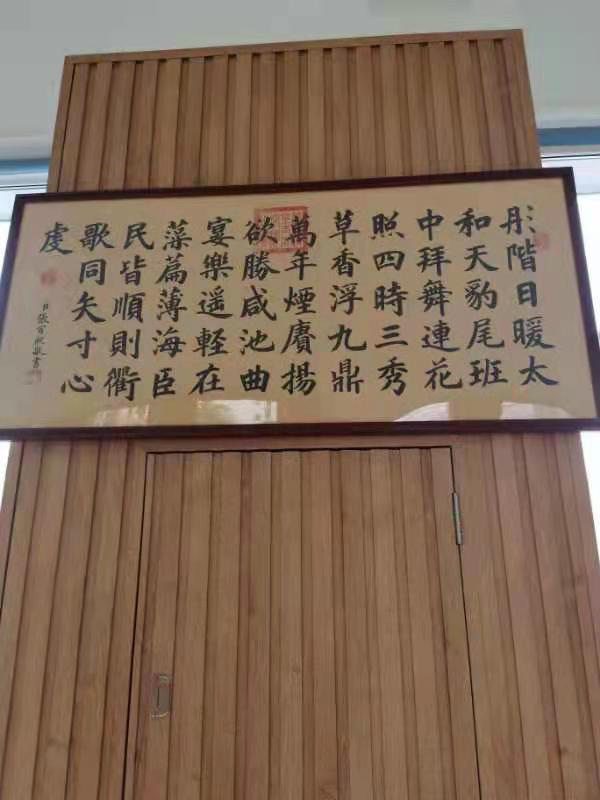 彤階日暖太
和天豹尾班
中拜舞連花
照四時三秀
草香浮九鼎
萬年煙賡揚
欲勝咸池曲
宴樂遥輕在
藻篇薄海臣
民皆順則衢
歌同矢寸心
虔
張百熙敬書